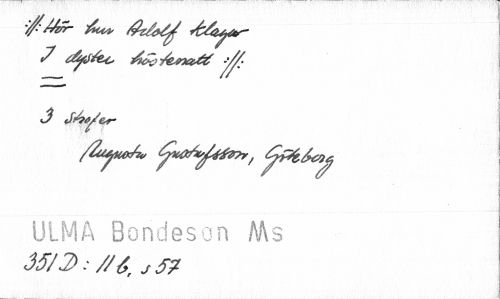 :||: Hör hur Adolf klagar
I dyster höstenatt :||:
3 strofer
Augusta Gustafsson, Göteborg
ULMA Bondeson Ms
351 D: 11 b, s 57